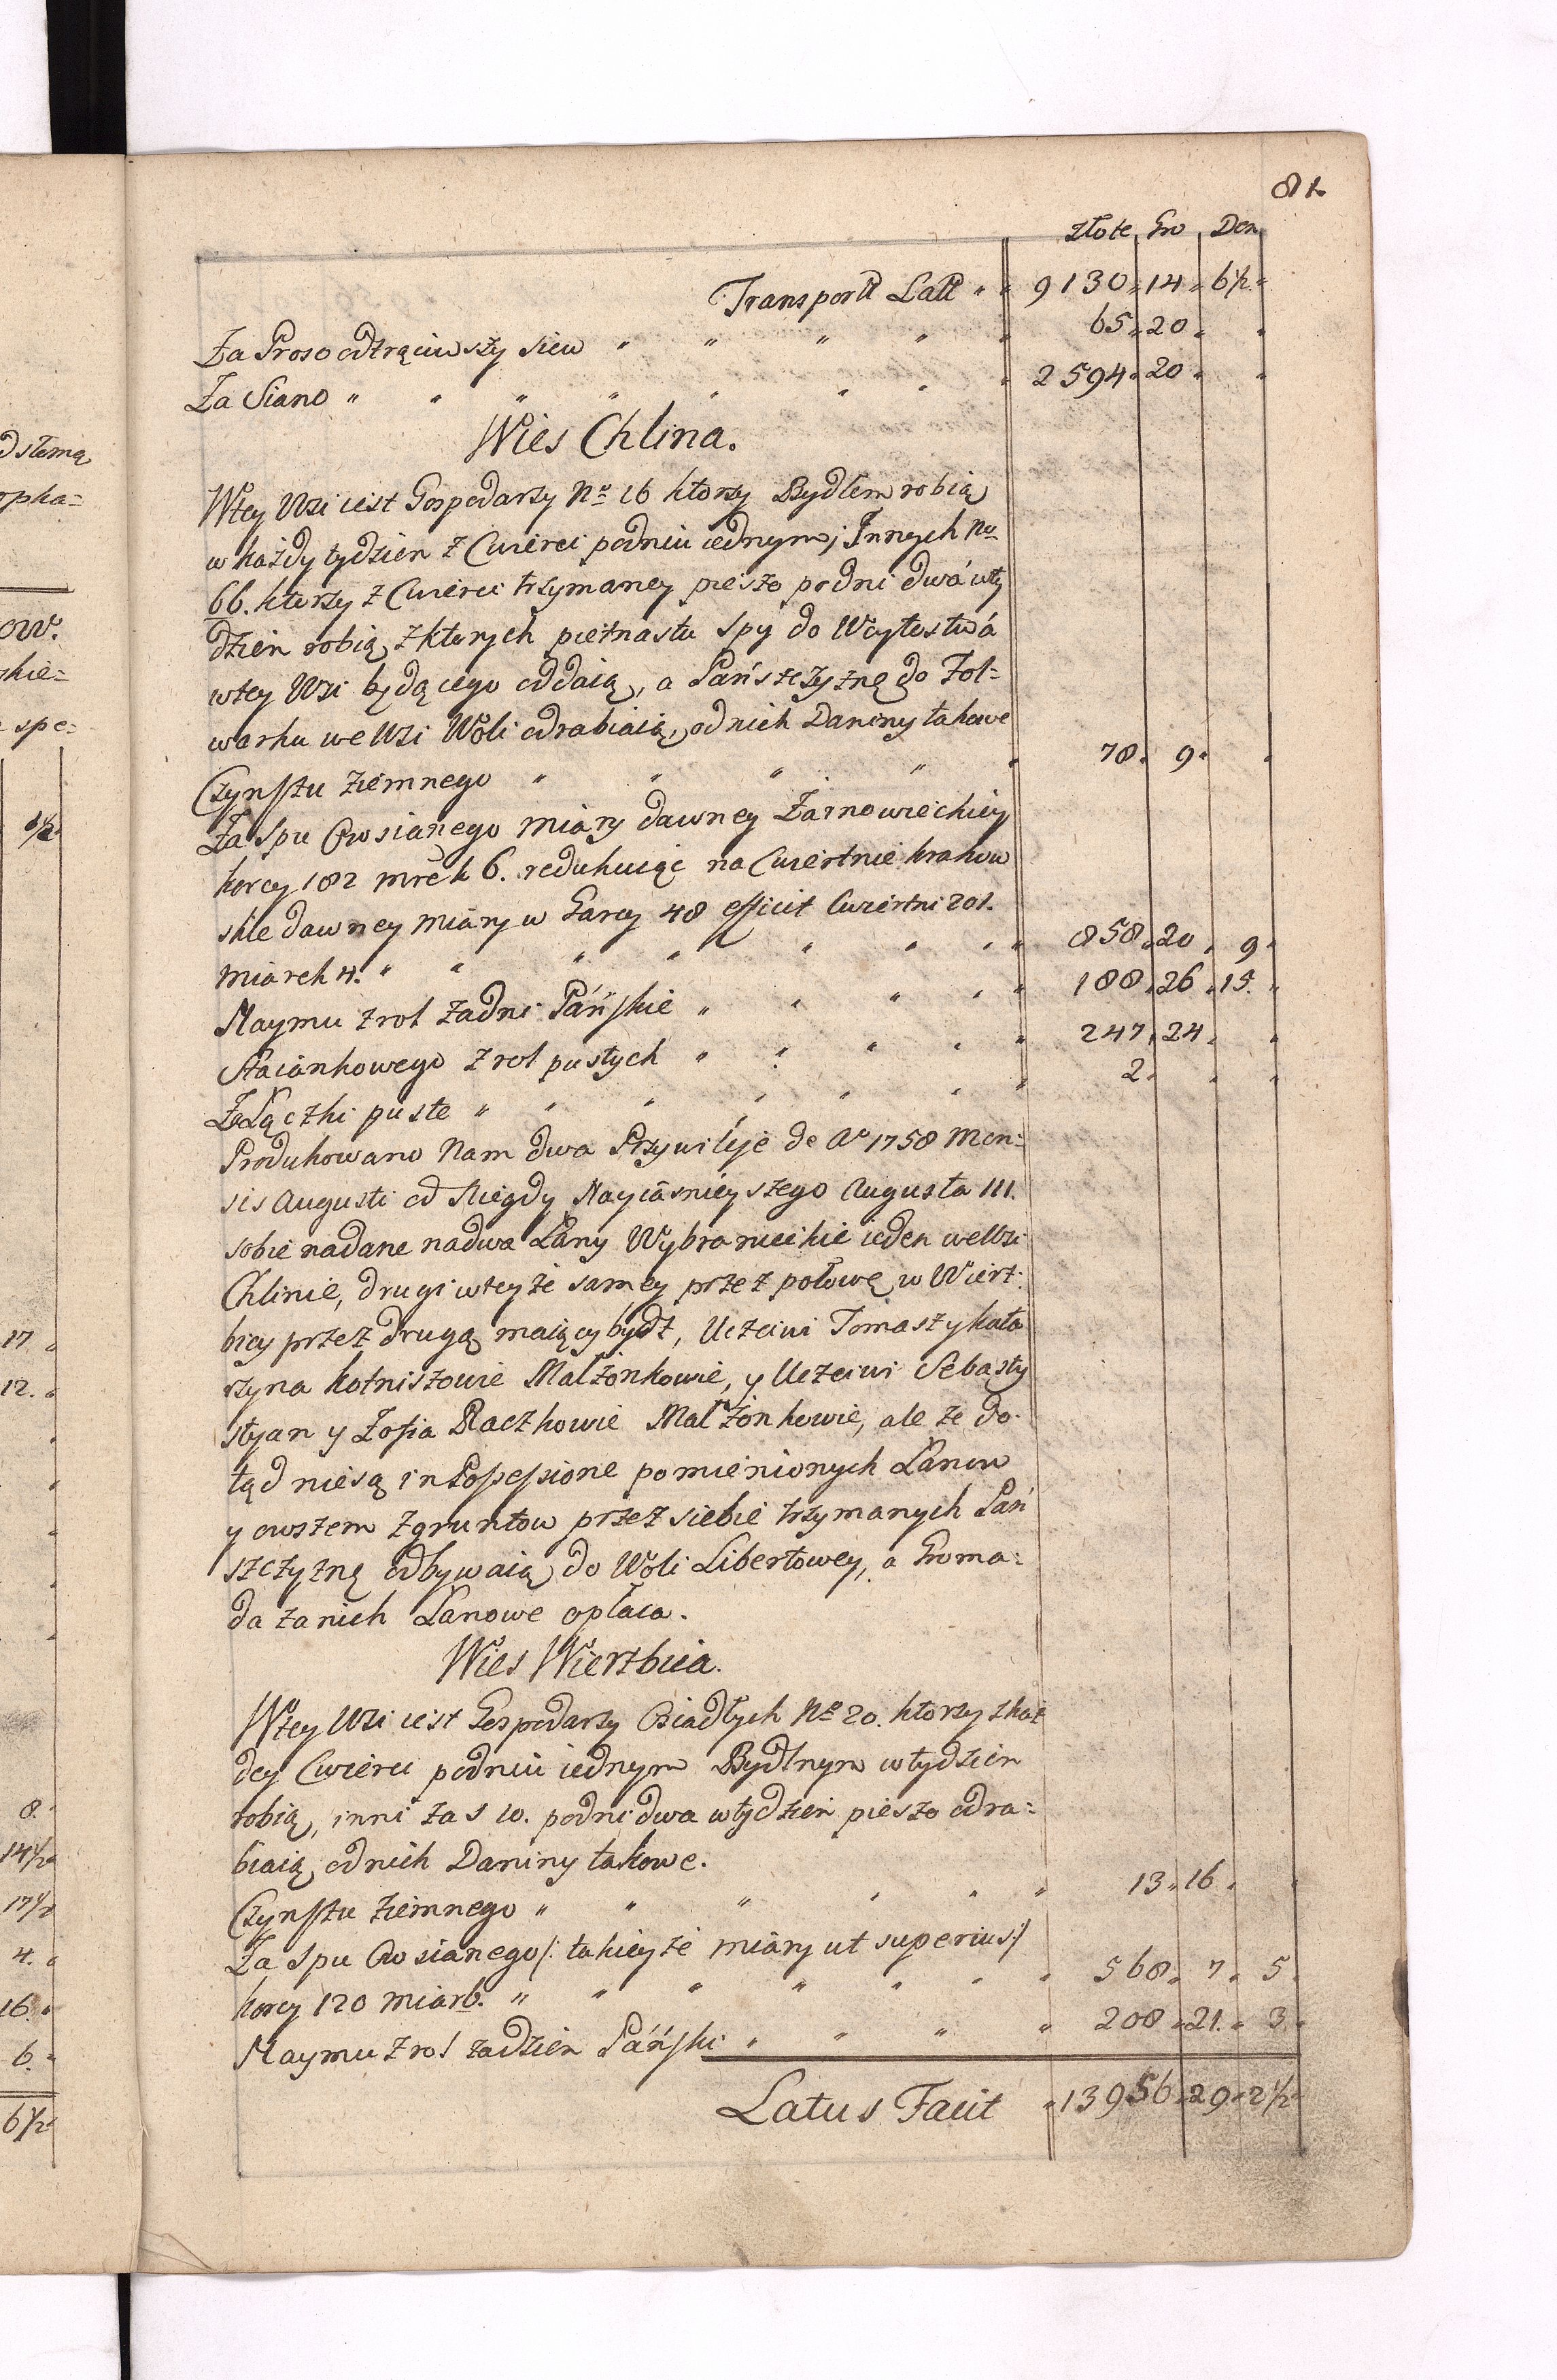 81.
złote Gro Den
Transportt Latt " " 9130 " 14 " 6 1/2 "
Za Proso odtrąciwszy siew " " " " " 65 " 20 " "
Za Siano " " " " " " " " 2594 " 20 " "
Wies Chlina.
Wtey Wsi iest Gospodarzy No 16 ktorzy Bydłem robią
w każdy tydzien z Cwierci podniu iednym; Innych No
66. ktorzy z Cwierci trzymaney pieszo podni dwá wty
dzien robią, z ktorych piętnastu spy do Woytostwá
wtey Wsi będącego oddaią, a Pańszczyznę do Fol=
warku we Wsi Woli odrabiaią, od nich Daniny takowe
Czynszu ziemnego " " " " " 78 " 9 " "
Za Spu Owsianego miary dawney Zarnowieckiey
korcy 182 mrek 6. redukuiąc na Cwiertnie krakow
skie dawney miary w Garcy 48 efficit Cwiertni 201.
miarek 4. " " " " " " " " 858 " 20 " 9 "
Naymu z rol zadni Pańskie " " " " " 188 " 26 " 15. "
Staiankowego z rol pustych " " " " " 247 " 24 " "
Ze Łączki puste " " " " " " " 2 " " "
Produkowano Nam dwa Przywileje de Ao 1758 Men=
sis Augusti od Niegdy Nayiaśnieyszego Augusta III.
sobie nadane na dwa Łany Wybranieckie ieden we Wsi
Chlinie, drugi wteyże samey przez połowę w Wierz=
bicy przez drugą maiący bydź, Uczciwi Tomasz y Kata
rzyna Kotniszowie Małżonkowie, y Uczciwi Sebasty
styan y Zofia Raczkowie Małżonkowie, ale ze do=
tąd nie są in Possessione pomienionych Łanow
y owszem z gruntow przez siebie trzymanych Pań
szczyznę odbywaią do Woli Libertowey, a Groma=
da za nich Łanowe opłaca.
Wies Wierzbica.
Wtey Wsi iest Gospodarzy Osiadłych No 20. ktorzy z każ
dey Cwierci podniu iednym Bydlnym wtydzien
robią, inni zas 10. podni dwa wtydzień pieszo odra=
biaią, od nich Daniny takowe.
Czynszu ziemnego " " " " " " 13 " 16 " "
Za Spu Owsianego /: takieyże miary ut superius :/
korcy 120 miar 6. " " " " " " " 568 " 7 " 5 "
Naymu z rol za dzien Pański " " " " 208 " 21. " 3 "
Latus Facit " 13956 " 29 " 2 1/2 "